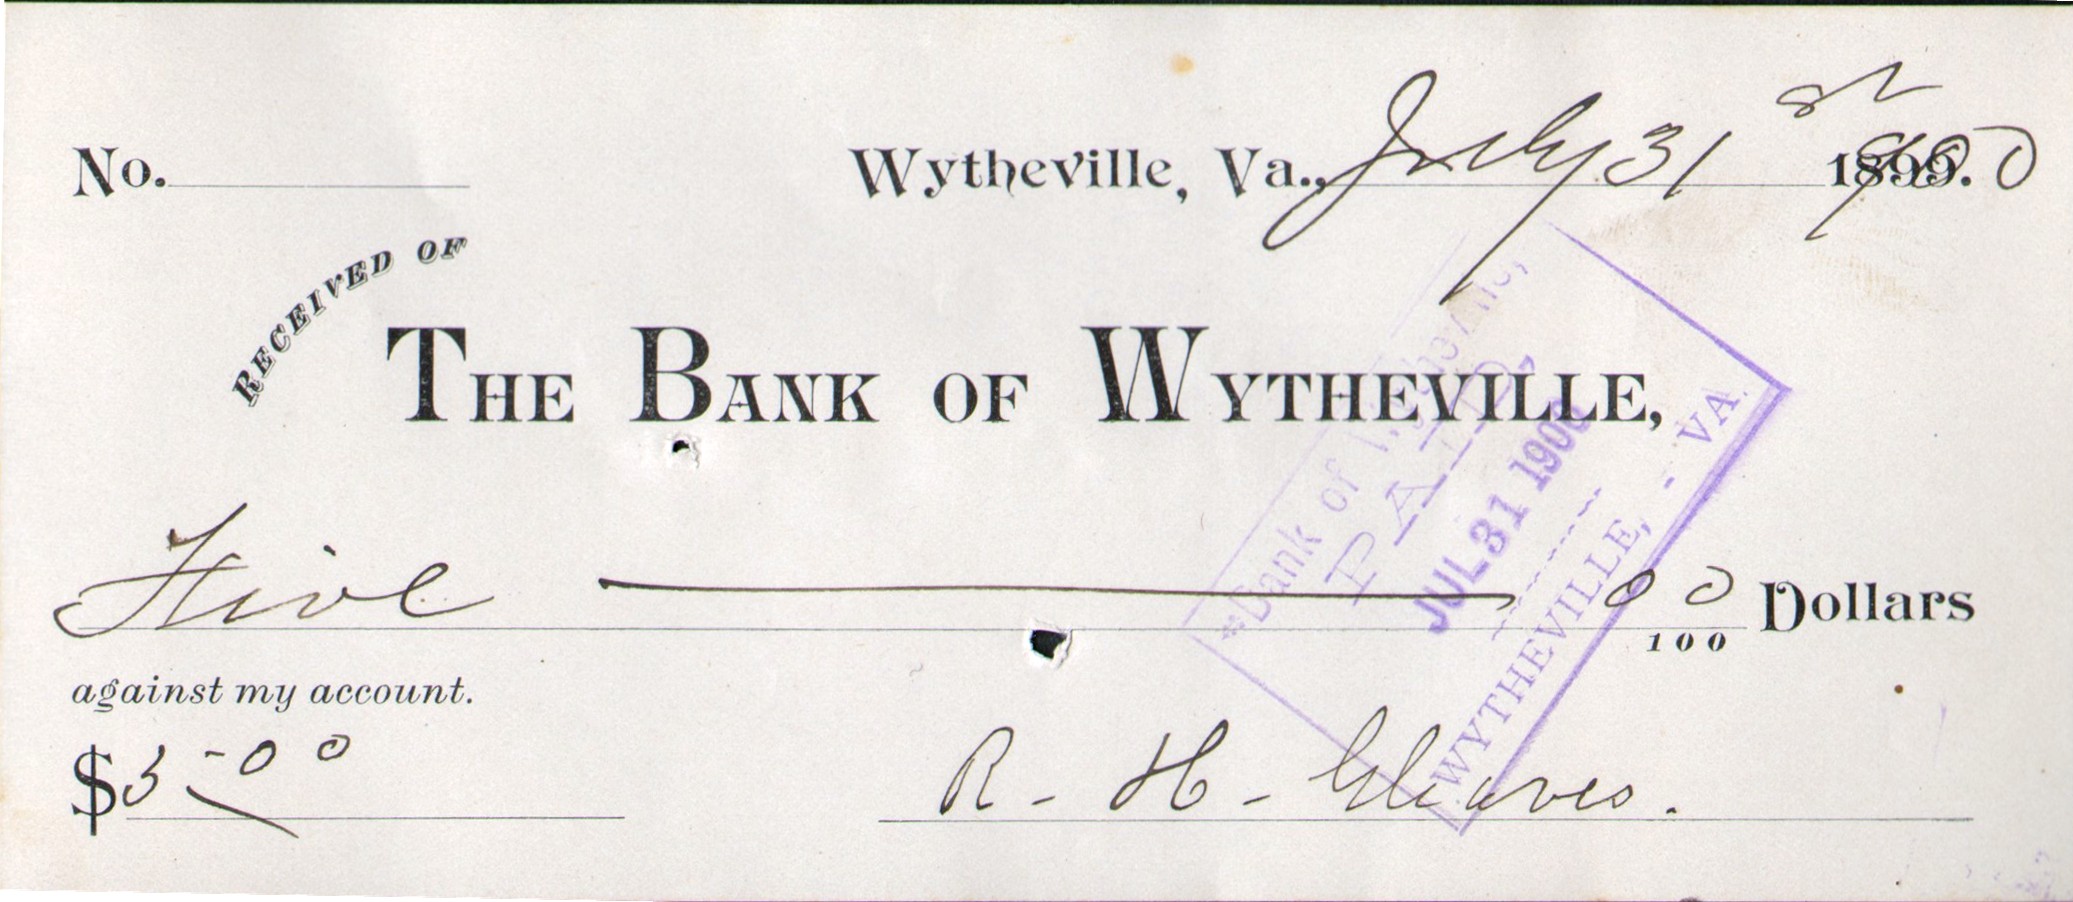 No. Wytheville, Va., July 31st 1899. 1900
RECEIVED OF
THE BANK OF WYTHEVILLE,
Five 00/100 Dollars
against my account.
$5-00 R. H. Gleaves.
Bank of Wytheville,
PAID,
JUL 31 1900
WYTHEVILLE, - VA.